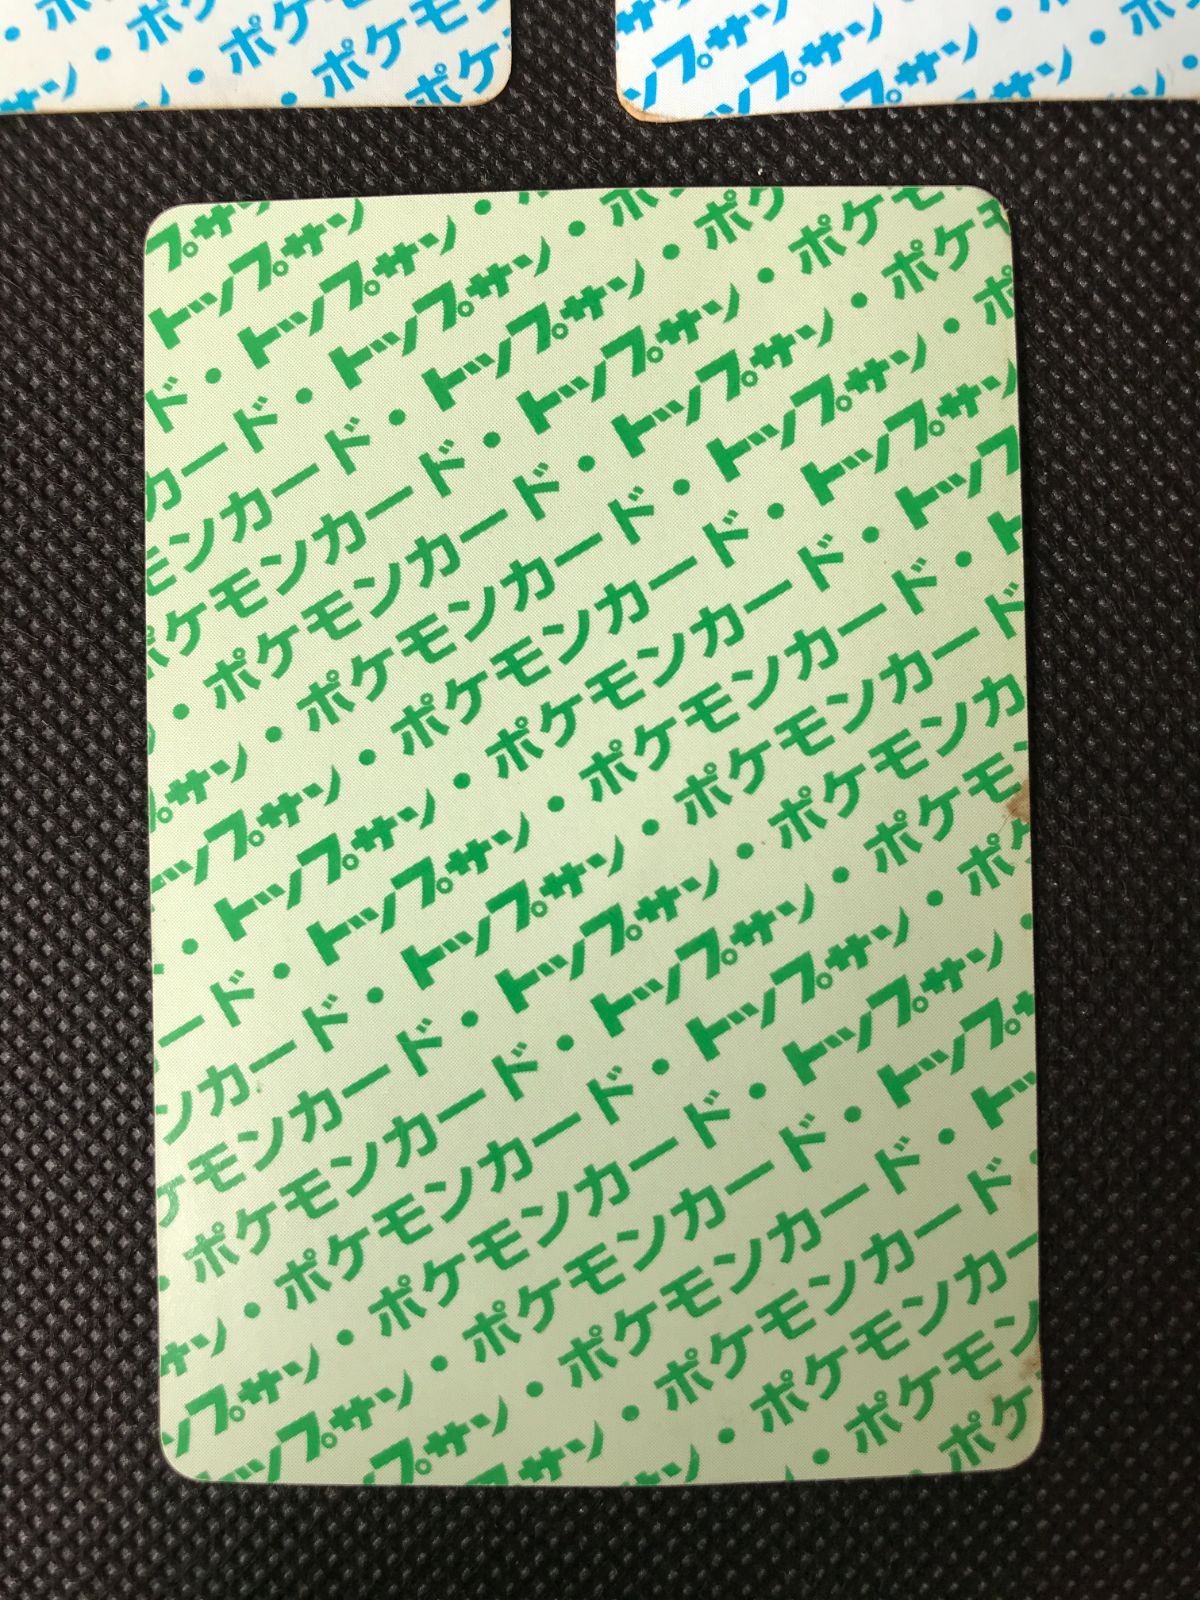 ・ポ
・ポケ
・ポケモ
ポケ
ップサン・
トップサン・ポケモ
トップサン・
プサ
トップサン
ド・トップサン・
カード・トップサン・ポ
モンカード・トップサン・ポケ
ポケモンカード・トップサン・ポケモ
・ポケモンカード・トップサン・ポケモ
プサン・ポケモンカード・トップサン・ポ
ップサン・ポケモンカード・トップサン
・トップサン・ポケモンカード・トップ
ード・トップサン・ポケモンカード・ト
ンカード・トップサン・ポケモンカード
ケモンカード・トップサン・ポケモンカ
・ポケモンカード・トップサン・ポケモ
サン・ポケモンカード・トップサン・ポ
ップサン・ポケモンカード・トップサン・
トップサン・ポケモンカード・トップサ
トップサン・ポケモンカード・ト
プサン・ポケモンカード・
ン・ポケモンカー
・ポケモン
ポケ